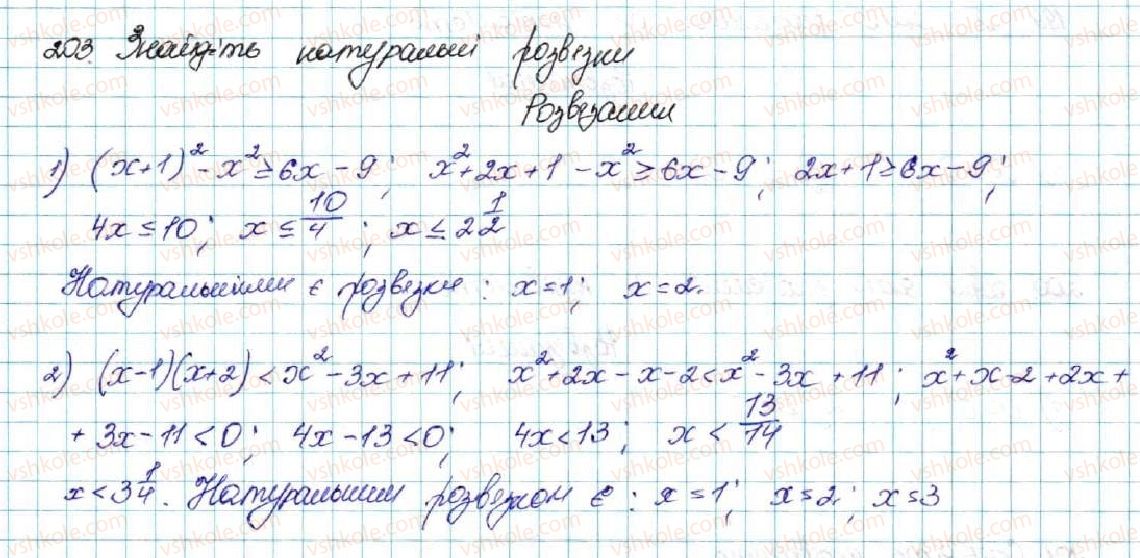 203. Знайдіть натуральні розвезки
Розвезании
1) (x+1)² - x² ≥ 6x - 9; x² + 2x + 1 - x² ≥ 6x - 9; 2x + 1 ≥ 6x - 9;
4x ≤ 10; x ≤ 10/4; x ≤ 2 1/2
Натуральними є розвезки: x = 1; x = 2.
2) (x-1)(x+2) < x² - 3x + 11; x² + 2x - x - 2 < x² - 3x + 11; x² + x - 2 + 2x +
+ 3x - 11 < 0; 4x - 13 < 0; 4x < 13; x < 13/14
x < 3 1/4. Натуральним розвезком є: x = 1; x = 2; x = 3
vshkole.com